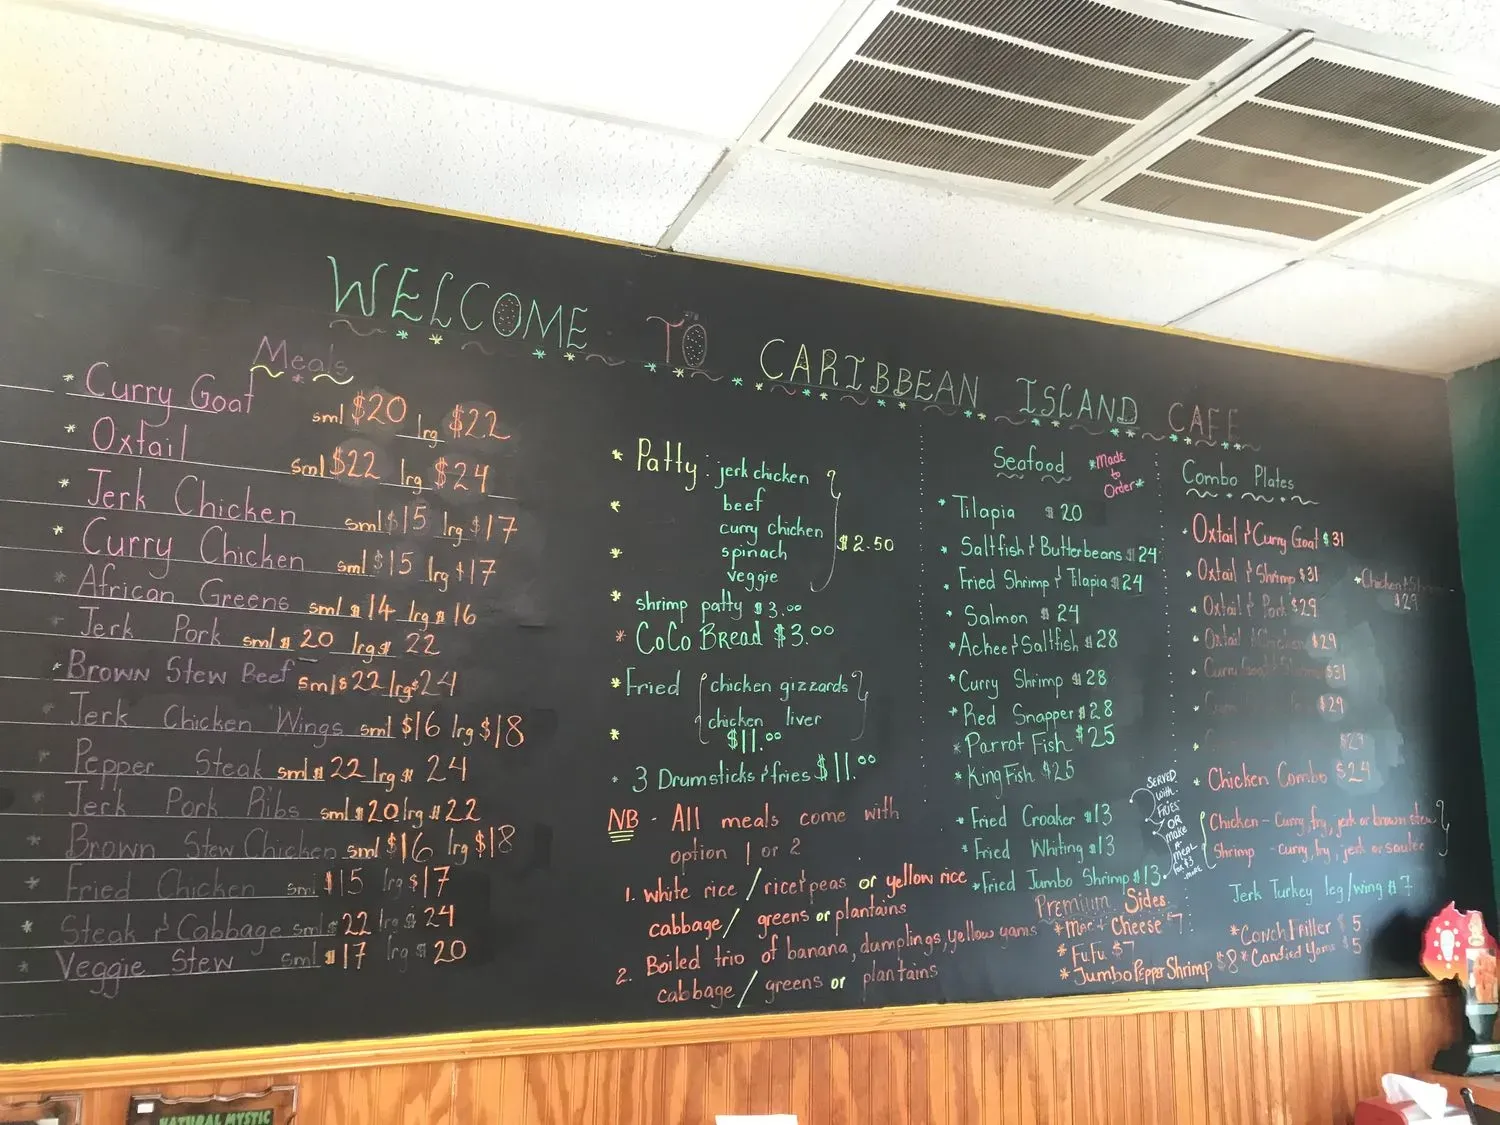 WELCOME TO CARIBBEAN ISLAND CAFE
Meals
* Curry Goat sml $20 lrg $22
* Oxtail sml $22 lrg $24
* Jerk Chicken sml $15 lrg $17
* Curry Chicken sml $15 lrg $17
* African Greens sml $14 lrg $16
* Jerk Pork sml $20 lrg $22
* Brown Stew Beef sml $22 lrg $24
* Jerk Chicken Wings sml $16 lrg $18
* Pepper Steak sml $22 lrg $24
* Jerk Pork Ribs sml $20 lrg $22
* Brown Stew Chicken sml $16 lrg $18
* Fried Chicken sml $15 lrg $17
* Steak & Cabbage sml $22 lrg $24
* Veggie Stew sml $17 lrg $20
* Patty: jerk chicken
* beef
curry chicken $2.50
* spinach
veggie
* shrimp patty $3.00
* CoCo Bread $3.00
* Fried chicken gizzards
* chicken liver
$11.00
* 3 Drumsticks & fries $11.00
NB - All meals come with
option 1 or 2
1. white rice / rice & peas or yellow rice
cabbage / greens or plantains
2. Boiled trio of banana, dumplings, yellow yams
cabbage / greens or plantains
Seafood *Made
to
Order*
* Tilapia $20
* Saltfish & Butterbeans $24
* Fried Shrimp & Tilapia $24
* Salmon $24
* Ackee & Saltfish $28
* Curry Shrimp $28
* Red Snapper $28
* Parrot Fish $25
* King Fish $25
* Fried Croaker $13
* Fried Whiting $13
* Fried Jumbo Shrimp $13
SERVED
with
FRIES
OR
make
a
MEAL
for $3
more
Premium Sides
* Mac + Cheese $7
* FuFu $7
* Jumbo Pepper Shrimp $8
Combo Plates
* Oxtail & Curry Goat $31
* Oxtail & Shrimp $31
* Oxtail & Pork $29
* Oxtail & Chicken $29
* Curry Goat & Shrimp $31
$29
* $27
* Chicken &
$29
* Chicken Combo $24
Chicken - curry, fry, jerk or brown stew
Shrimp - curry, fry, jerk or sautee
Jerk Turkey leg/wing $7
* Conch Fritter $5
* Candied Yams $5
NATURAL MYSTIC